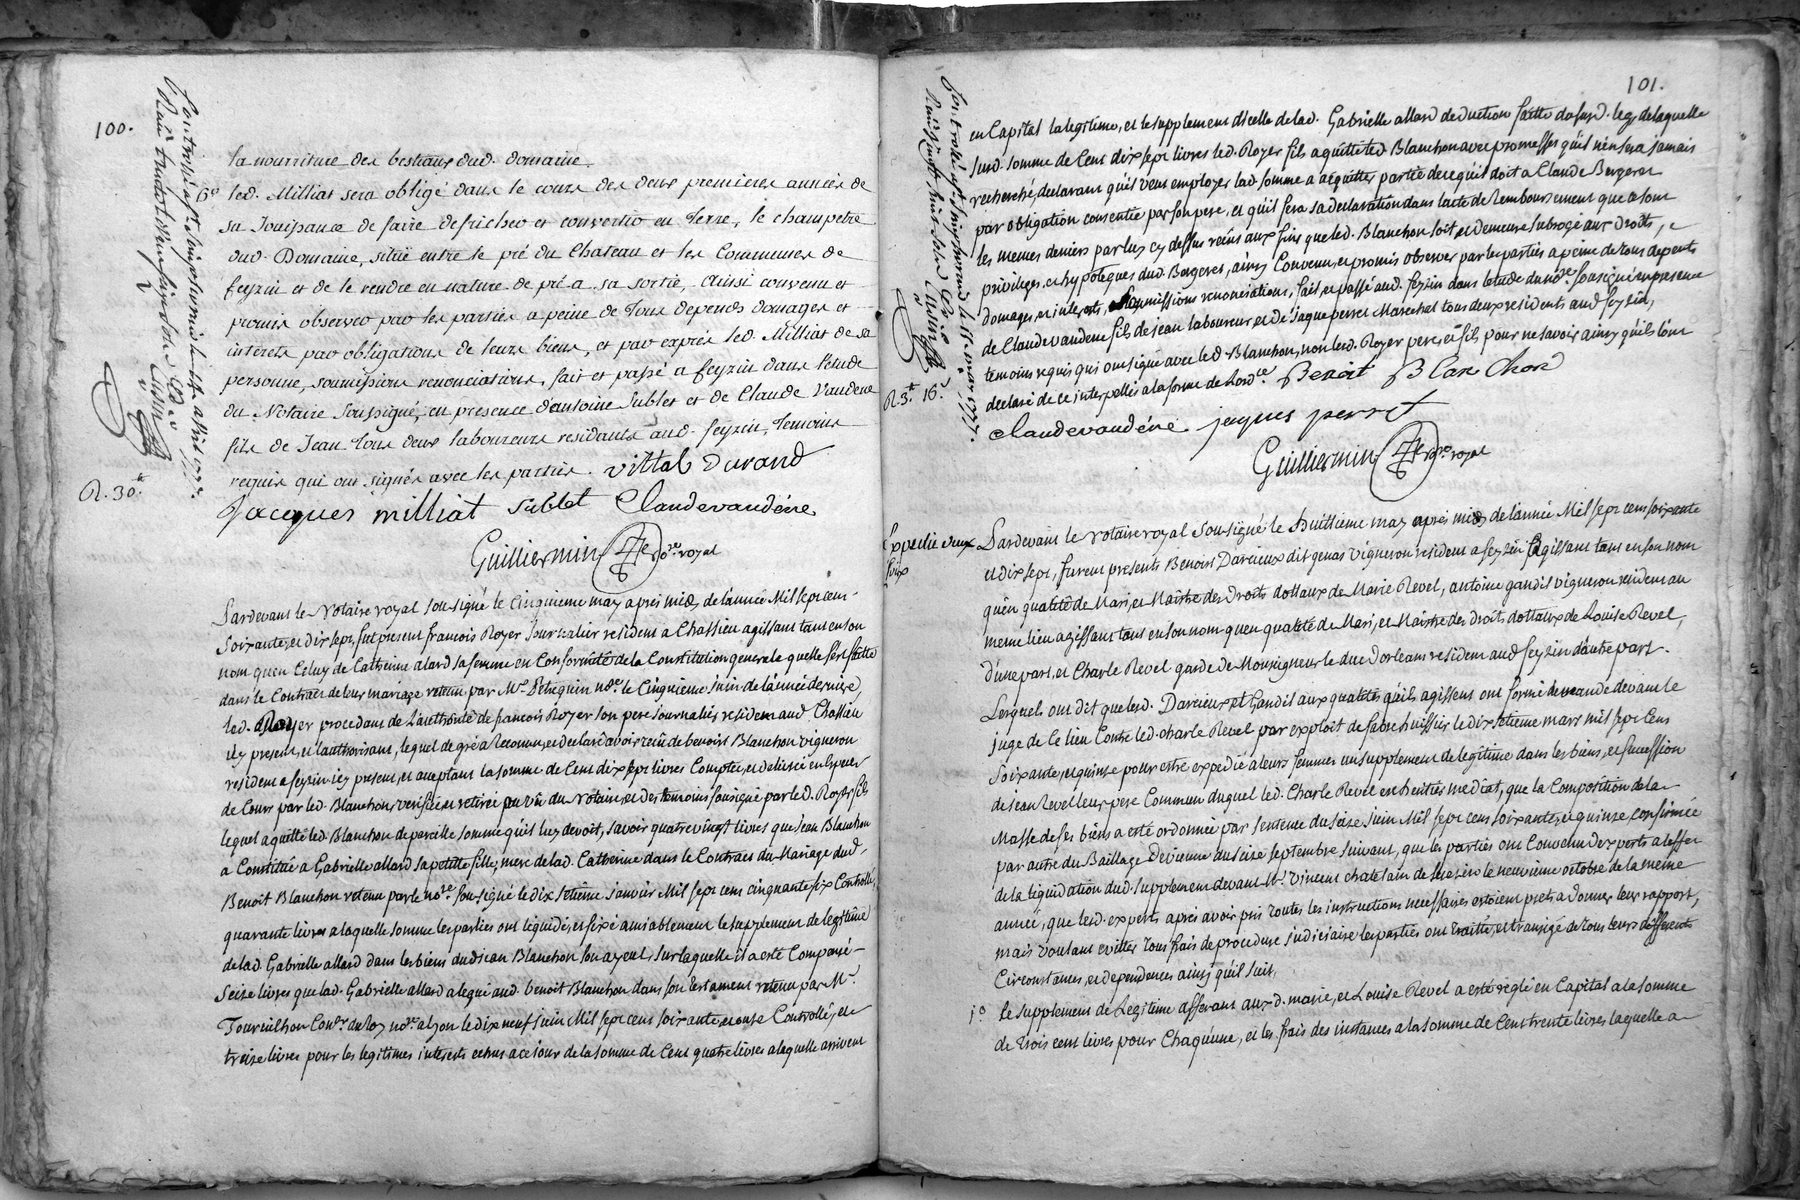 100.
la nourriture des bestiaux dud. domaine
6° led. Milliat sera obligé dans le cours des deux premieres années de
sa Jouissance de faire defricher et convertir en Terre, le champetre
dud. Domaine, situé entre le pré du Chateau et les Communes de
feyzin et de le rendre en nature de pré a sa sortie, Ainsi convenu et
promis observer par les parties a peine de Tous depends domages et
interets par obligations de leurs biens, et par exprés led. Milliat de sa
personne, soumissions renonciations, fait et passé a feyzin dans letude
du Notaire Soussigné, en presence d'antoine Sublet et de Claude Vaudene
fils de Jean tous deux laboureurs residants aud. feyzin, Temoins
requis qui ont signés avec les parties. vittal Durand
R. 30.tt
Jacques milliat Sublet Claudevaudéne
Guilliermin No.re royal
Pardevant le Notaire royal sousigné le Cinquieme may apres midy de l'année Mil sept cent
Soixante et dix sept, fut present francois Royer Journalier resident a Chassieu agissant tant en son
nom qu'en Celuy de Catherine alard sa femme en Conformité de la Constitution generale quelle s'est faitte
dans le Contract de leur mariage retenu par Me. no.re le Cinquieme Juin de l'année derniere,
led. Royer procedant de l'authorité de francois Royer son pere Journalier resident aud. Chassieu
icy present, et l'authorisant, lequel de gré a Reconnu, et declaré avoir recû de benoist Blanchon vigneron
resident a feyzin icy present, et acceptant la somme de Cent dix sept livres Comptée, et delivrée en Especes
de Cours par led. Blanchon, verifiée et retirée au vû du Notaire, et des temoins sousigné par led. Royer fils
lequel aquitte led. Blanchon de pareille somme qu'il luy devoit, savoir quatre vingt livres que Jean Blanchon
a Constitué a Gabrielle allard sa petite fille, mere de lad. Catherine dans le Contract du Mariage dud.
Benoit Blanchon retenu par le no.re sousigné le dix setieme janvier Mil sept cens cinquante six Controllé,
quarante livres a laquelle somme les parties ont liquidé, et fixé amiablement le supplement de legitime
de lad. Gabrielle allard dans les biens dud. jean Blanchon son ayeul, sur laquelle il a esté Compensé
Seize livres que lad. Gabrielle allard a legué aud. benoit Blanchon dans son testament retenu par Mr.
Tourvilhon Con.er du roy no.re a lyon le dix neuf juin Mil sept cent soixante et onze Controllé, et
treize livres pour les legitimes interests echus a ce jour de la somme de Cent quatre livres a laquelle arrivent
101.
en Capital la legitime, et le supplement d'icelle de lad. Gabrielle allard deduction faitte du susd. legs de laquelle
susd. somme de Cent dix sept livres led. Royer fils aquitte led. Blanchon avec promesses qu'il n'en sera jamais
recherché, declarant qu'il veut employer lad. somme a acquitter partie de ce qu'il doit a Claude Bergeret
par obligation consentie par son pere, et qu'il fera sa declaration dans lacte de Remboursement que ce sont
les memes deniers par luy cy dessus recûs aux fins que led. Blanchon soit, et demeure subrogé aux droits,
privileges, et hypoteques dud. Bergeret, ainsy Convenu, et promis observer par les parties a peine de tous depents
domages, et interests, soumissions renonciations, fait, et passé aud. feyzin dans letude du no.re sousigné en presence
de Claude vaudene fils de jean laboureur, et de jaque perret Marechal tous deux residents aud. feyzin,
temoins requis qui ont signé avec led. Blanchon, non led. Royer pere, et fils pour ne savoir ainsy qu'ils l'ont
declaré de ce interpellés a la forme de Lord.ce. Benoit Blanchon
R. 3.tt 16.s
Claudevaudéne jaques perret
Guilliermin no.re royal
Expedié deux fois
Pardevant le Notaire royal Sousigné le huittieme may après midy de l'année Mil sept cens soixante
et dix sept, furent presents Benoist Darcieux dit genas vigneron resident a feyzin agissant tant en son nom
qu'en qualité de Mari, et Maistre des Droits dottaux de Marie Revel, antoine gandil vigneron resident au
meme lieu agissant tant en son nom qu'en qualité de Mari, et Maistre des droits dottaux de Louise Revel,
d'une part, et Charle Revel garde de Monsigneur le duc d'orleans resident aud. feyzin d'autre part.
Lesquels ont dit que led. Darcieux et Gandil aux qualités qu'ils agissent ont formé demande devant le
juge de Ce lieu Contre led. charle Revel par exploit de fabre huissier le dix setieme mars mil sept Cens
Soixante, et quinze pour estre expedié a leurs femmes un supplement de legitime dans les biens, et succession
de jean Revel leur pere Commun duquel led. Charle Revel est heritier mediat, que la Composition de la
Masse de ses biens a esté ordonnée par sentence du seize juin Mil sept cens soixante, et quinze confirmée
par autre du Baillage de vienne du seize septembre suivant, que les parties ont Convenu d'experts a leffet
de la liquidation dud. supplement devant Mr. Vincent chatelain de le neuvieme octobre de la meme
année, que led. experts après avoir pris toutes les instructions necessaires estoient prets a donner leur rapport,
mais voulant eviter tous frais de procedure judiciaire les parties ont traitté, et transigé de tous leurs differents
Circonstances, et dependences ainsy qu'il suit,
1° le supplement de Legitime afferant aux d. marie, et Louise Revel a esté reglé en Capital a la somme
de trois cent livres pour Chaqueune, et les frais des instances a la somme de Cent trente livres laquelle a